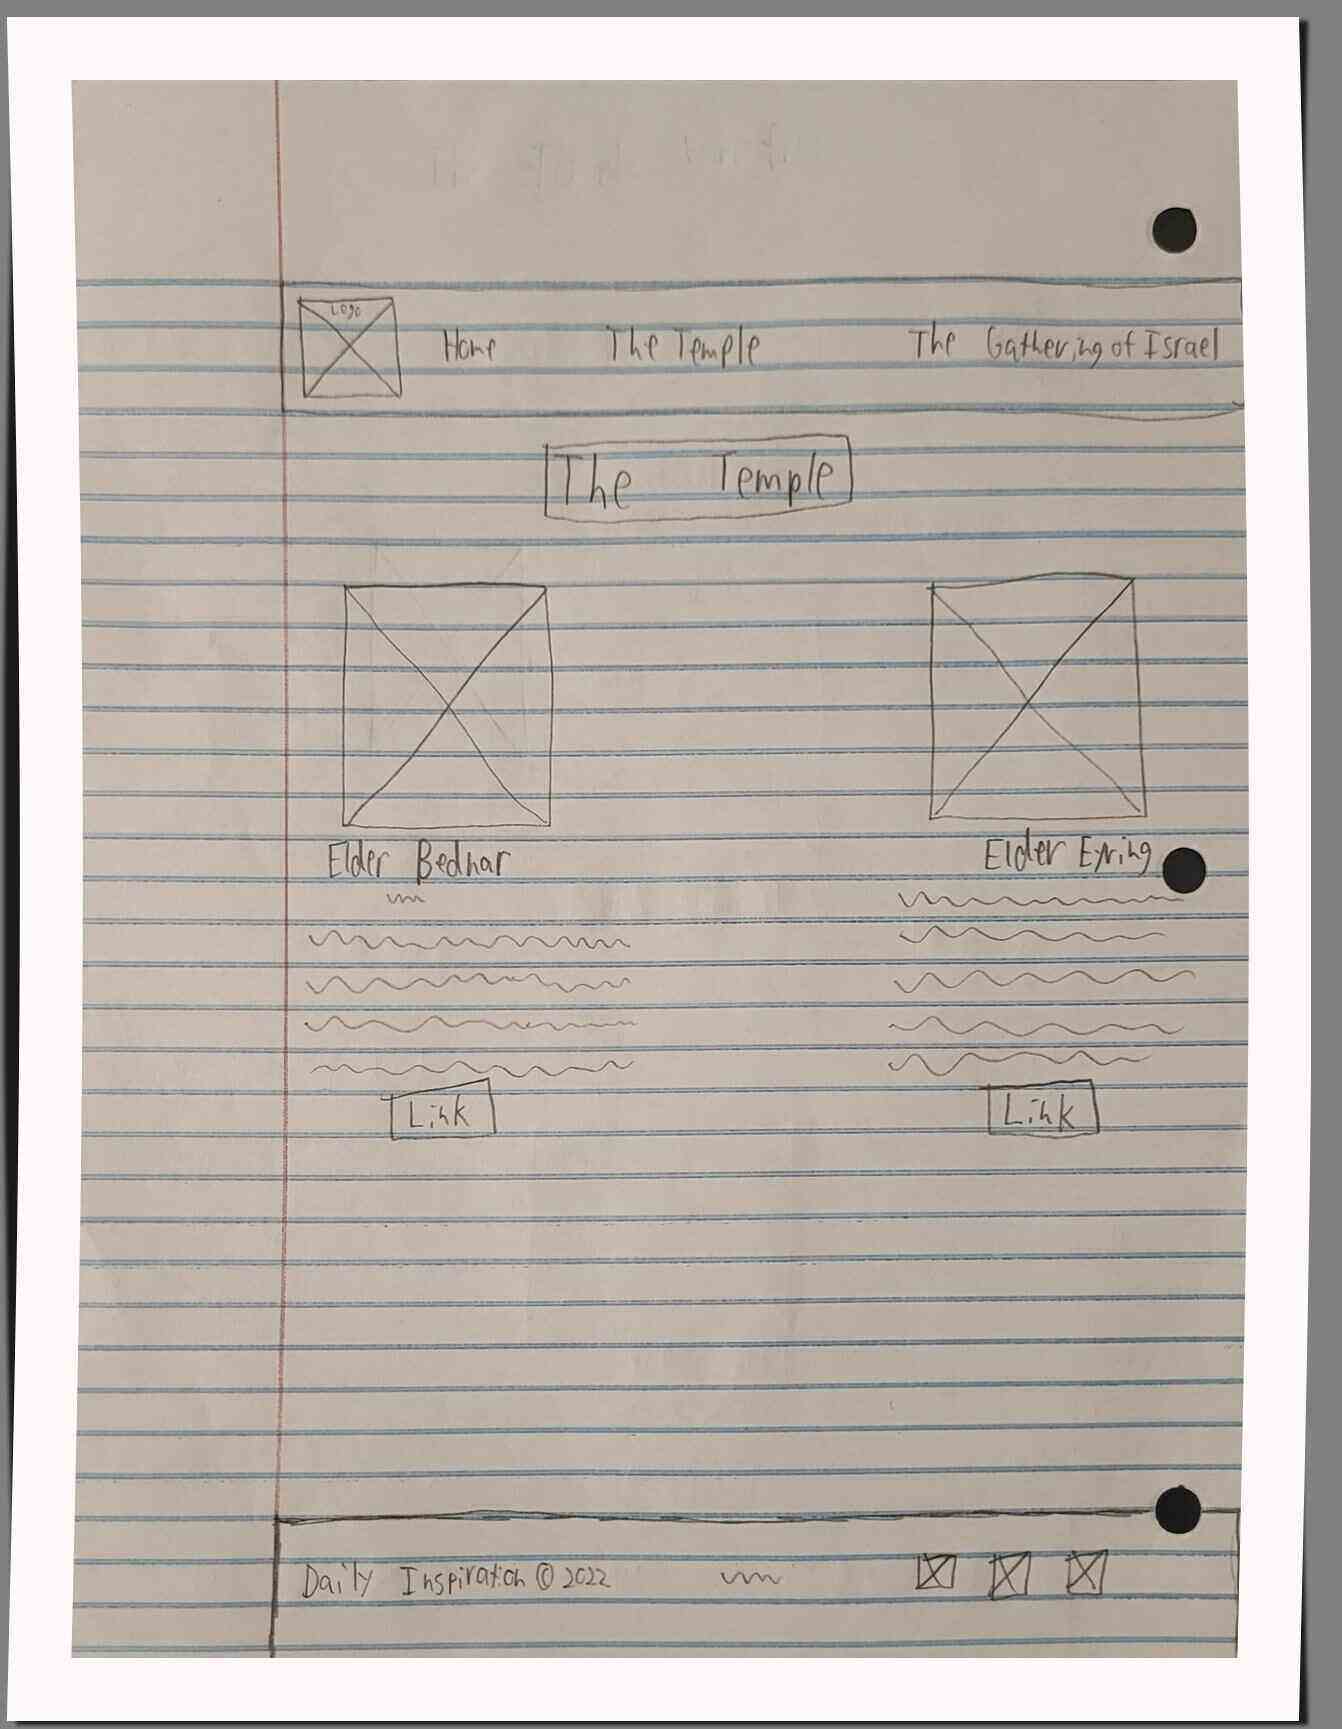 Logo
Home The Temple The Gathering of Israel
The Temple
Elder Bednar Elder Eyring
Link Link
Daily Inspiration © 2022